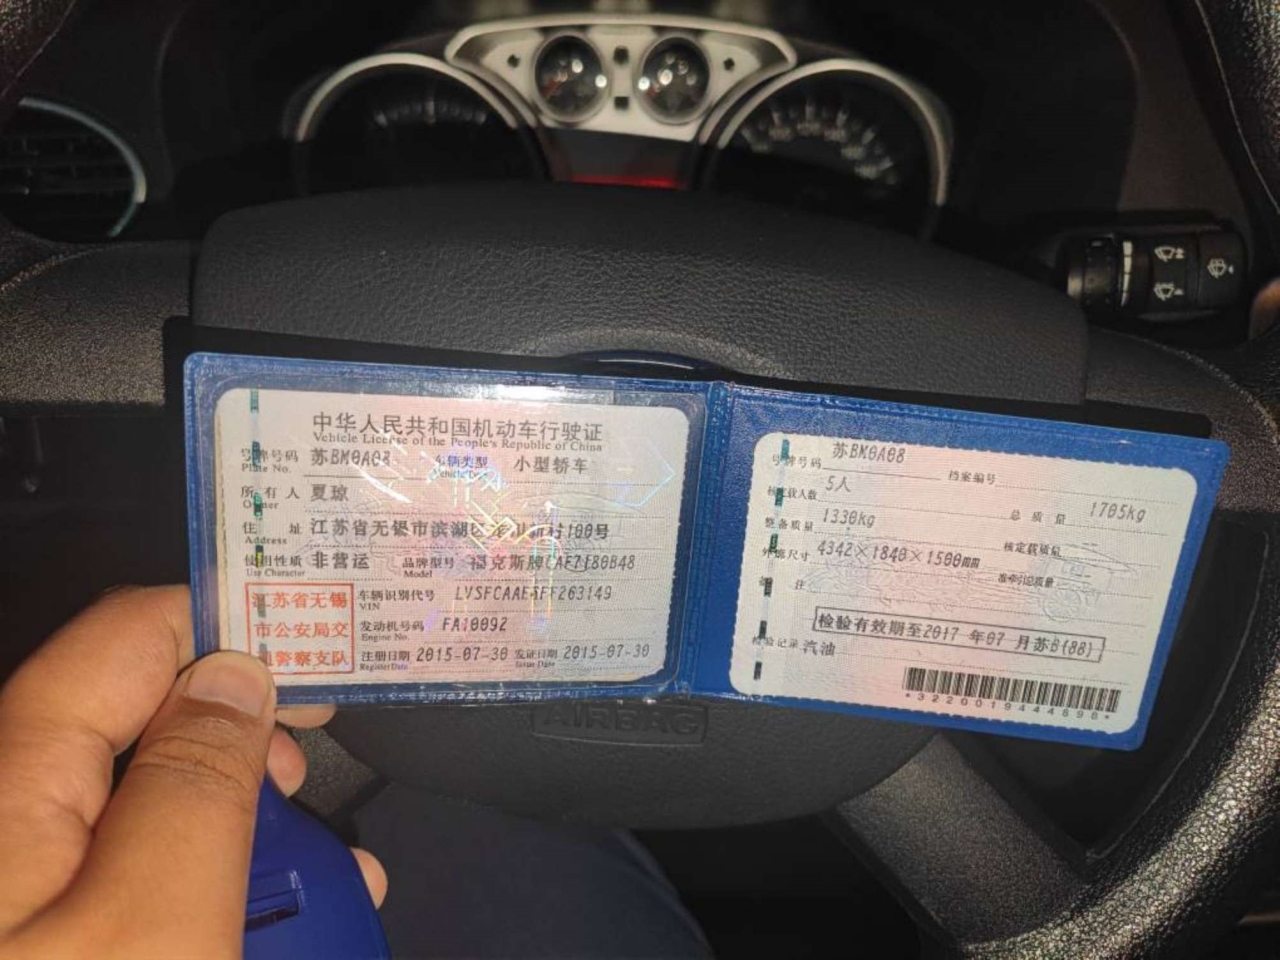 中华人民共和国机动车行驶证
Vehicle License of the People's Republic of China
号牌号码 苏BM0A08 车辆类型 小型轿车
Plate No.
所有人 夏琼
Owner
住址 江苏省无锡市滨湖区 新村100号
Address
使用性质 非营运 品牌型号 福克斯牌CAF7180B48
Use Character Model
江苏省无锡
市公安局交
通警察支队
车辆识别代号 LVSFCAAE FF263149
VIN
发动机号码 FA10092
Engine No.
注册日期 2015-07-30 发证日期 2015-07-30
Register Date Issue Date
号牌号码 苏BM0A08 档案编号
核定载人数 5人 总质量 1705kg
整备质量 1330kg 核定载质量
外廓尺寸 4342×1840×1500mm 准牵引总质量
备注
检验有效期至2017年07月苏B(88)
检验记录 汽油
*3220019444698*
AIRBAG